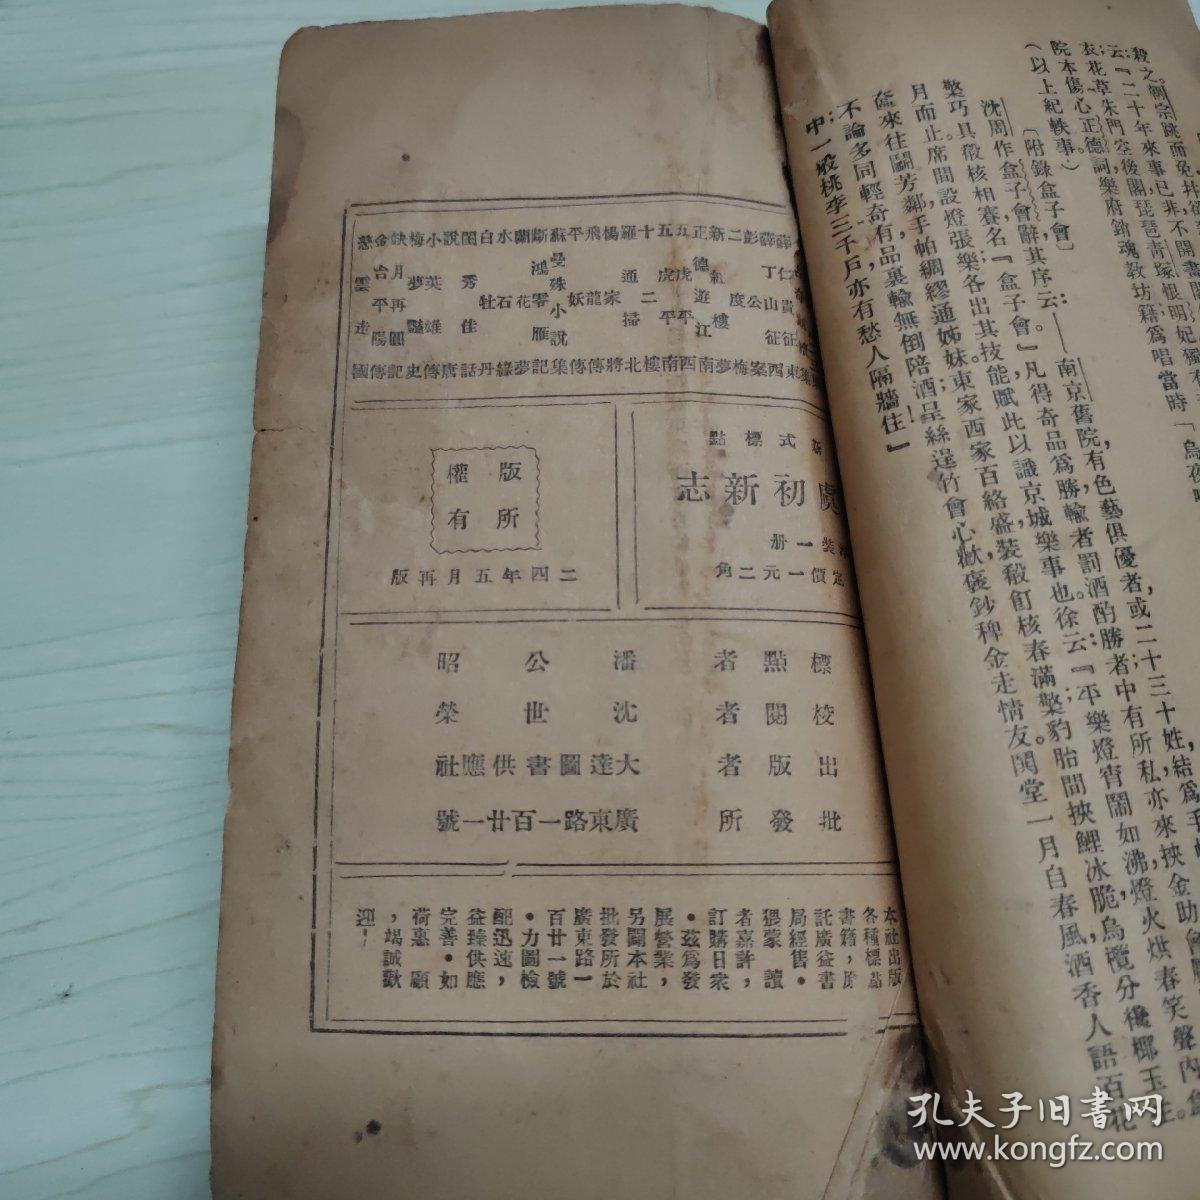 云:『二十年來事已非不開畫閣
衣花草朱門空後閣琵琶靑塚恨明妃獨有
院本傷心正德詞,樂府銷魂敎坊籍爲唱當時「烏夜
(以上紀軼事)
〔附錄盒子會〕
沈周作盒子會辭其序云:——南京舊院,有色藝俱優者,或二十三十姓,結爲手帕
檠巧具殽核相賽名『盒子會』凡得奇品爲勝輸者罰酒酌勝者中有所私亦來挾金助會
月而止席間設燈張樂各出其技能賦此以識京城樂事也徐云:『平樂燈宵鬧如沸,燈火烘春笑聲內,盒
奩來往鬭芳鄰手帕綢繆通姊妹東家西家百絡盛裝殽飣核春滿檠;豹胎間挾鯉冰脆烏欖分欖椰玉生。
不論多同輕奇有品裏輸無倒陪酒呈絲逞竹會心歡褒鈔稗金走情友閧堂一月自春風酒香人語百花
中;一般桃李三千戶,亦有愁人隔牆住』
薛仁貴征東
薛丁山征西
彭公案
二度梅
新紅樓夢
正德遊江南
五虎平西
五虎平南
十二樓
羅通掃北
楊家將
飛龍傳
平妖傳
蘇曼殊小說集
斷鴻零雁記
蘭花夢
水石緣
白牡丹
閨秀佳話
說唐
小英雄傳
梅夢豔史
缺月再圓記
金台平陽傳
慈雲走國
新式標點
虞初新志
洋裝一册
定價一元二角
版權
所有
二四年五月再版
標點者 潘公昭
校閱者 沈世榮
出版者 大達圖書供應社
批發所 廣東路一百廿一號
本社出版
各種標點
書籍,原
託廣益書
局經售。
猥蒙讀
者嘉許,
訂購日衆
。茲爲發
展營業,
另闢本社
批發所於
廣東路一
百廿一號
。力圖檢
配迅速,
益臻供應
完善。如
荷惠顧
,竭誠歡
迎!
孔夫子旧书网
www.kongfz.com